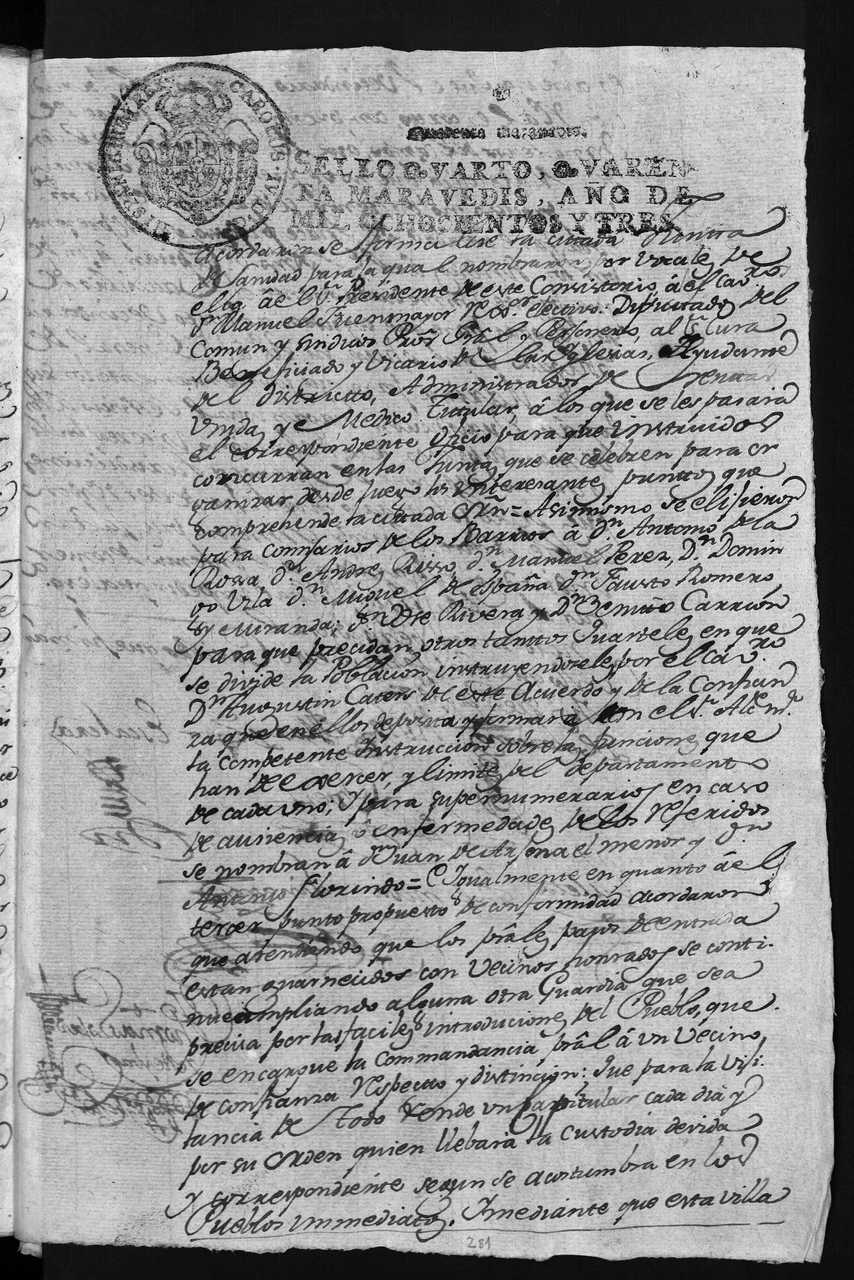 CAROLUS IV D G HISPANIAR REX
Quarenta maravedis.
SELLO QVARTO, QVAREN-
TA MARAVEDIS, AÑO DE
MIL OCHOCIENTOS Y TRES.
Acordaron se forme la citada Junta
de Sanidad para la qual nombraron por vocales
de este Consistorio, á el Cavro.
Dn. Manuel electivo: Diputados del
Comun y Sindicos Pror. Gral. y Personero, al Sr. Cura
Beneficiado y Vicario de las Iglesias, Ayudante
del districtto, Administrador de Rentas
Unidas, y Medico Titular, á los que se les pasará
el correspondiente oficio para que instruidos
concurran en las Juntas que se celebren para or
ganizar desde luego los interesantes puntos que
comprehende la citada Orn = Asimismo se elijieron
para comisarios de los Barrios á Dn. Antonio de la
Rosa Dn. Andres Risso, Dn. Manuel Perez, Dn. Domin
go Dn. Miguel de España Dn. Fausto Romero,
y Miranda; Dn. Rivera y Dn. Benito Carrion
para que precidan otros tantos Quarteles en que
se divide la Población instruyendoseles por el Cavro.
Dn. Augustin de este Acuerdo y de la Confian
za que en ellos deposita y firmará con el Sr.
la Competente Instruccion sobre las funciones que
han de exercer, y limites del departamento
de cada uno; y para supernumerarios en caso
de aucencia, ó enfermedades de los referidos
se nombran á Dn. Juan de el menor y Dn.
Antonio Florindo = E Igualmente en quanto á el
tercer punto propuesto de conformidad acordaron
que atendiendo que los prales. pasos de entrada
están guarnecidos con Vecinos honrados se conti-
nue ampliando alguna otra Guardia que sea
precisa por las faciles introducciones del Pueblo, que
se encargue la Commandancia pral á un Vecino
de confianza respecto y distincion: que para la Visi
tancia de todo ronde un Capitular cada dia y
por su orden quien llebará la custodia devida
y correspondiente segun se acostumbra en los
Pueblos immediatos. Imediante que esta villa
281